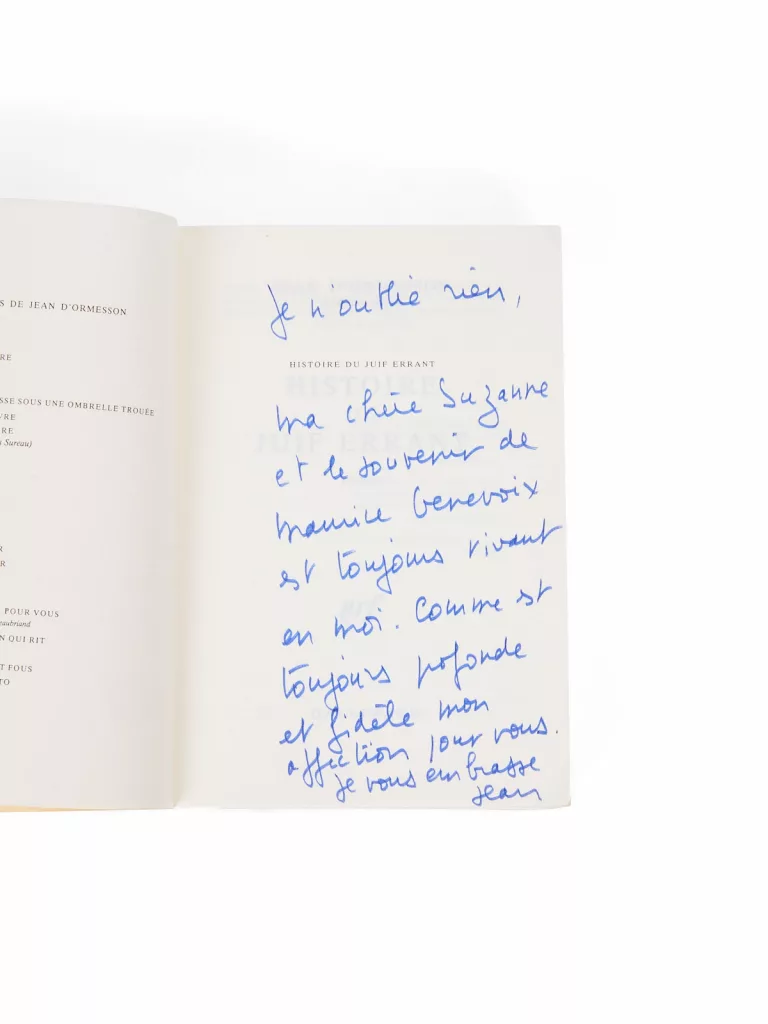 S DE JEAN D'ORMESSON
RE
SSE SOUS UNE OMBRELLE TROUÉE
VRE
RE
n Sureau)
R
R
POUR VOUS
eaubriand
N QUI RIT
T FOUS
TO
Je n'oublie rien,
HISTOIRE DU JUIF ERRANT
HISTOIRE
JUIF ERRANT
nrf
ma chère Suzanne
et le souvenir de
Maurice Genevoix
est toujours vivant
en moi. Comme est
toujours profonde
et fidèle mon
affection pour vous.
Je vous embrasse
Jean